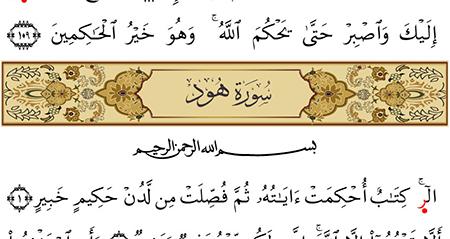 إِلَيْكَ وَٱصْبِرْ حَتَّىٰ يَحْكُمَ ٱللَّهُ ۚ وَهُوَ خَيْرُ ٱلْحَاكِمِينَ ﴿١٥٩﴾
سُورَة هُود
بسم الله الرحمن الرحيم
الٓر ۚ كِتَابٌ أُحْكِمَتْ ءَايَاتُهُۥ ثُمَّ فُصِّلَتْ مِن لَّدُنْ حَكِيمٍ خَبِيرٍ ﴿١﴾